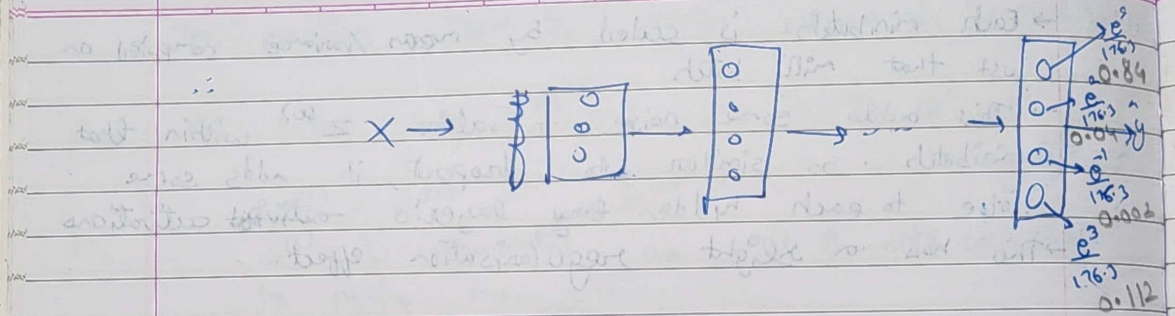 ∴
X → → → → ŷ
e⁵/176.3
0.84
e²/176.3
0.04
e⁻¹/176.3
0.002
e³/176.3
0.112